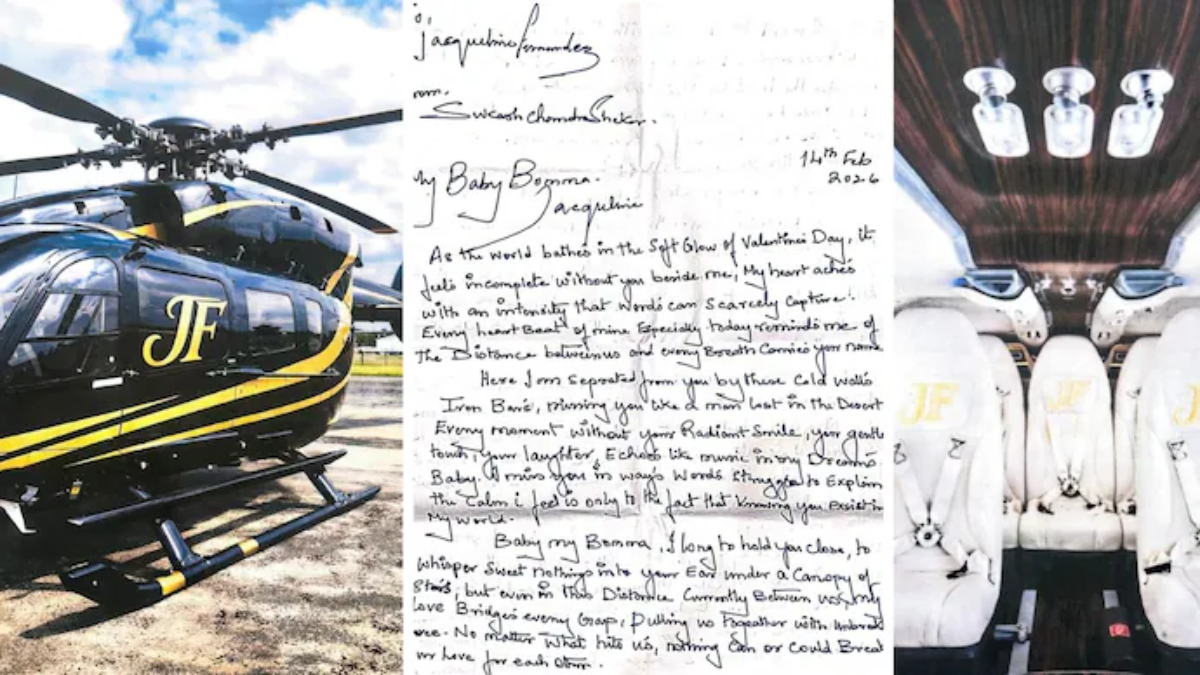 JF
To,
Jacqueline Fernandez
From.
Sukash Chandra Shekar.
14th Feb
2026
My Baby Bomma.
Jacqueline
As the world bathes in the Soft Glow of Valentines Day, it
feels incomplete without you beside me, My heart aches
with an intensity that words can scarcely capture!
Every heart Beat of mine Especially today reminds me of
the Distance between us and every Breath Carries your name
Here I am seprated from you by these Cold walls
Iron Bars, missing you like a man lost in the Desert
Every moment without your Radiant Smile, your gentle
touch, your laughter, Echoes like music in my Dreams
Baby. I miss you in ways Words Struggle to Explain
the Calm i feel is only to the fact that Knowing you Exist in
My world.
Baby my Bomma, I long to hold you close, to
whisper Sweet nothings into your Ear under a Canopy of
Stars, but even in this Distance Currently Between us, my
Love Bridges every Gap, Pulling us together with
No matter What hits us, nothing Can or Could Break
our Love for each other.
JF
JF
JF